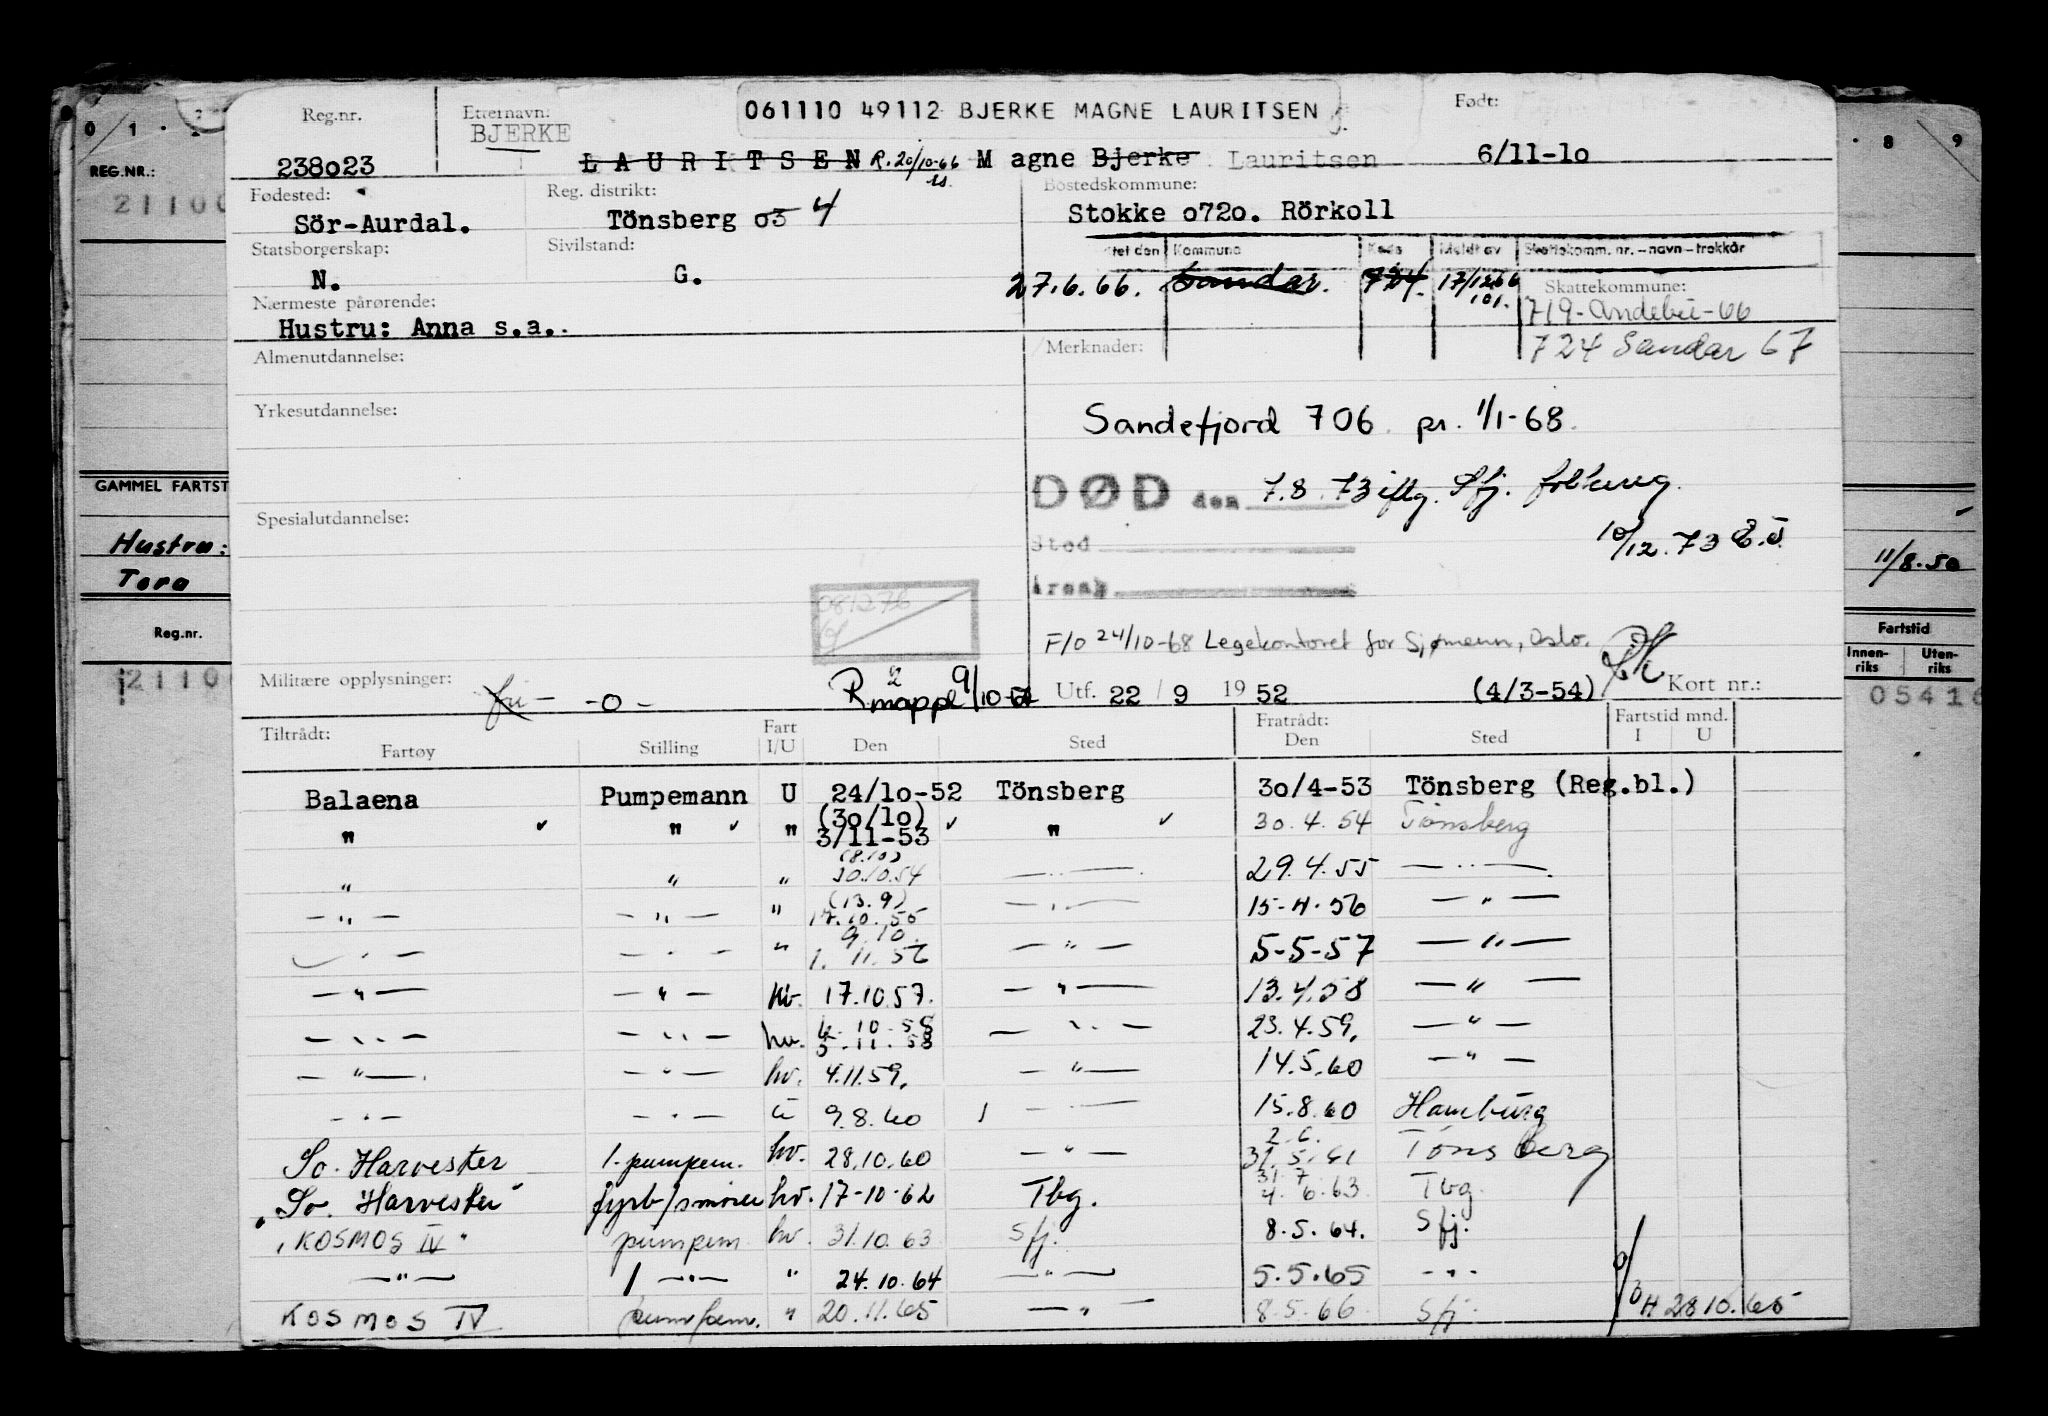 061110 49112 BJERKE MAGNE LAURITSEN
Reg.nr. Etternavn: Født:
BJERKE
238o23 LAURITSEN R. 20/10-66 Magne Bjerke Lauritsen 6/11-1o
Fødested: Reg. distrikt: Bostedskommune:
Sör-Aurdal. Tönsberg o3 4 Stokke o72o. Rörkoll
Statsborgerskap: Sivilstand:
N. G.
tet den Kommune Kode Meldt av Skattekomm. nr. – navn – trekkår
27.6.66. Sandar. 724. 17/1266 101.
Skattekommune:
719-Andebu-66
724 Sandar 67
Nærmeste pårørende:
Hustru: Anna s.a.
Almenutdannelse: Merknader:
Yrkesutdannelse:
Sandefjord 706 pr. 1/1-68.
DØD den 7.8.73 iflg. Sfj. folkereg.
10/12.73 E.J.
Spesialutdannelse:
Sted
Årsak
081276
F/O 24/10-68 Legekontoret for Sjømenn, Oslo.
Militære opplysninger: fri- -o- R mappe 2 9/10-61 Utf. 22 / 9 1952 (4/3-54) Kort nr.:
Tiltrådt: Fratrådt: Fartstid mnd.
Fartøy Stilling Fart I/U Den Sted Den Sted I U
Balaena Pumpemann U 24/1o-52 Tönsberg 3o/4-53 Tönsberg (Reg.bl.)
" ✓ " ✓ " (3o/1o) 3/11-53 ✓ " ✓ 30.4.54 Tönsberg
" " " (8.10) 30.10.54 — " — 29.4.55 — " —
— " — — " — " (13.9) 17.10.55 — " — 15-4-56 — " —
— " — — " — " 9.10. 1.11.56 — " — 5-5-57 — " —
— " — — " — hv. 17.10.57. — " — 13.4.58 — " —
— " — — " — hv. 6.10.58 5.11.58 — " — 23.4.59. — " —
— " — — " — hv. 4.11.59. — " — 14.5.60 — " —
— " — — " — U 9.8.60 — " — 15.8.60 Hamburg
So. Harvester 1. pumpem. hv. 28.10.60 — " — 2.6. 31.5.61 Tönsberg
"So. Harvester" fyrb/smører hv. 17-10-62 Tbg. 31.7 4.6.63 Tbg.
"KOSMOS IV" pumpem hv. 31.10.63 Sfj. 8.5.64. Sfj.
— " — 1 — " — " 24.10.64 — " — 5.5.65 — " —
KOSMOS IV pumpem. " 20.11.65 — " — 8.5.66 Sfj. H 28 10.65
0 1
REG.NR.:
21100
GAMMEL FARTST
Hustru:
Tora
Reg.nr.
21100
8 9
11/8.50
Fartstid
Innenriks Utenriks
05416